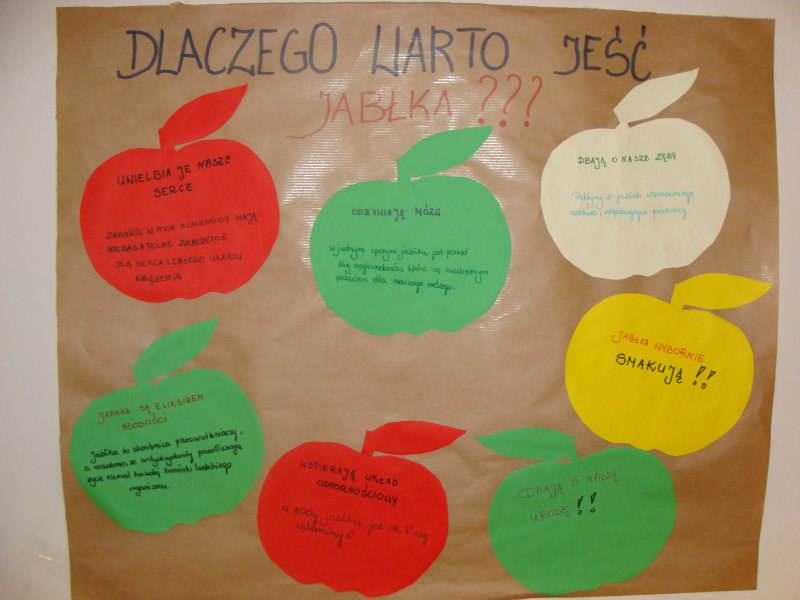 DLACZEGO WARTO JEŚĆ
JABŁKA ???
UWIELBIA JE NASZE
SERCE
ZAWARTE W NICH FLAWONOWY MAJĄ
NIEBAGATELNE ZNACZENIE
DLA SERCA I CAŁEGO UKŁADU
KRĄŻENIA
ODŻYWIAJĄ MÓZG
W jednym sporym jabłku jest ponad
16g węglowodanów, które są niezbędnym
paliwem dla naszego mózgu.
DBAJĄ O NASZE ZĘBY
Pektyny z jabłek wzmacniają
szkliwo, zapobiegają próchnicy.
JABŁKA WYBORNIE
SMAKUJĄ !!
JABŁKA SĄ ELIKSIREM
MŁODOŚCI
Jabłka to skarbnica przeciwutleniaczy,
a wiadomo, że antyoksydanty przedłużają
życie niemal każdej komórki ludzkiego
organizmu.
WSPIERAJĄ UKŁAD
ODPORNOŚCIOWY
W 100g jabłka jest ok. 8 mg
witaminy C
DBAJĄ O NASZĄ
URODĘ !!